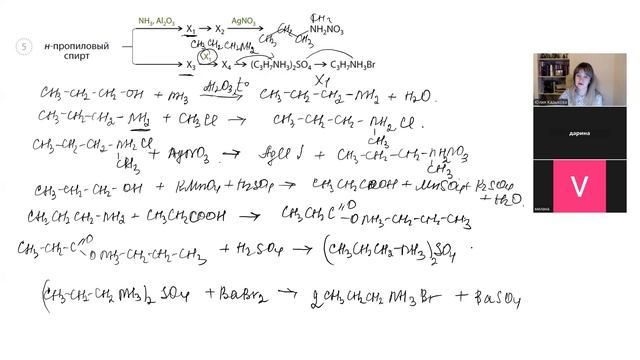 NH₃, Al₂O₃ AgNO₃ CH₃
X₁ → X₂ → CH₃ CH₂ CH₃ NH₂NO₃
CH₃CH₂CH₂NH₂
5 н-пропиловый спирт
X₁
X₃ → X₄ → (C₃H₇NH₃)₂SO₄ → C₃H₇NH₃Br
X₁
CH₃-CH₂-CH₂-OH + NH₃ Al₂O₃, t° → CH₃-CH₂-CH₂-NH₂ + H₂O.
CH₃-CH₂-CH₂-NH₂ + CH₃Cl → CH₃-CH₂-CH₂-NH₂Cl.
CH₃
CH₃-CH₂-CH₂-NH₂Cl + AgNO₃ → AgCl↓ + CH₃-CH₂-CH₂-NH₂NO₃
CH₃ CH₃
CH₃-CH₂-CH₂-OH + KMnO₄ + H₂SO₄ → CH₃CH₂COOH + MnSO₄ + K₂SO₄
+ H₂O
CH₃CH₂CH₂-NH₂ + CH₃CH₂COOH → CH₃CH₂C=O
ONH₃-CH₂-CH₂-CH₃
CH₃-CH₂-C=O + H₂SO₄ → (CH₃CH₂CH₂-NH₃)₂SO₄.
ONH₃-CH₂-CH₂-CH₃
(CH₃-CH₂-CH₂NH₃)₂SO₄ + BaBr₂ → 2CH₃CH₂CH₂NH₃Br + BaSO₄
Юлия Кадыкова
дарина
V
милана